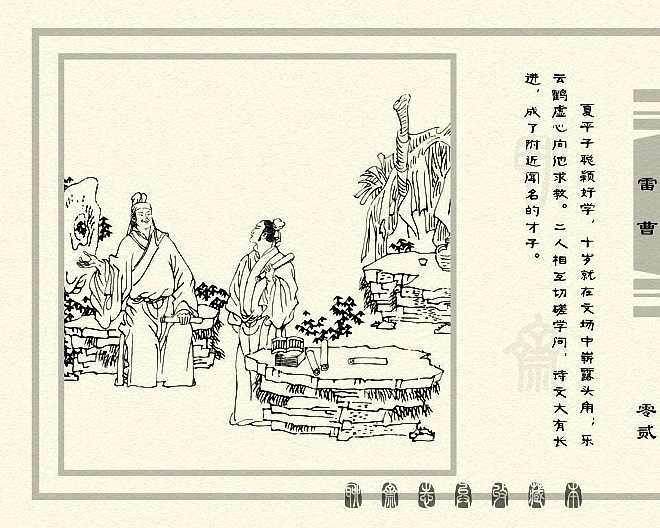 夏平子聪颖好学，十岁就在文场中崭露头角；乐
云鹤虚心向他求教。二人相互切磋学问，诗文大有长
进，成了附近闻名的才子。
雷曹
零贰
聊斋志异收藏本